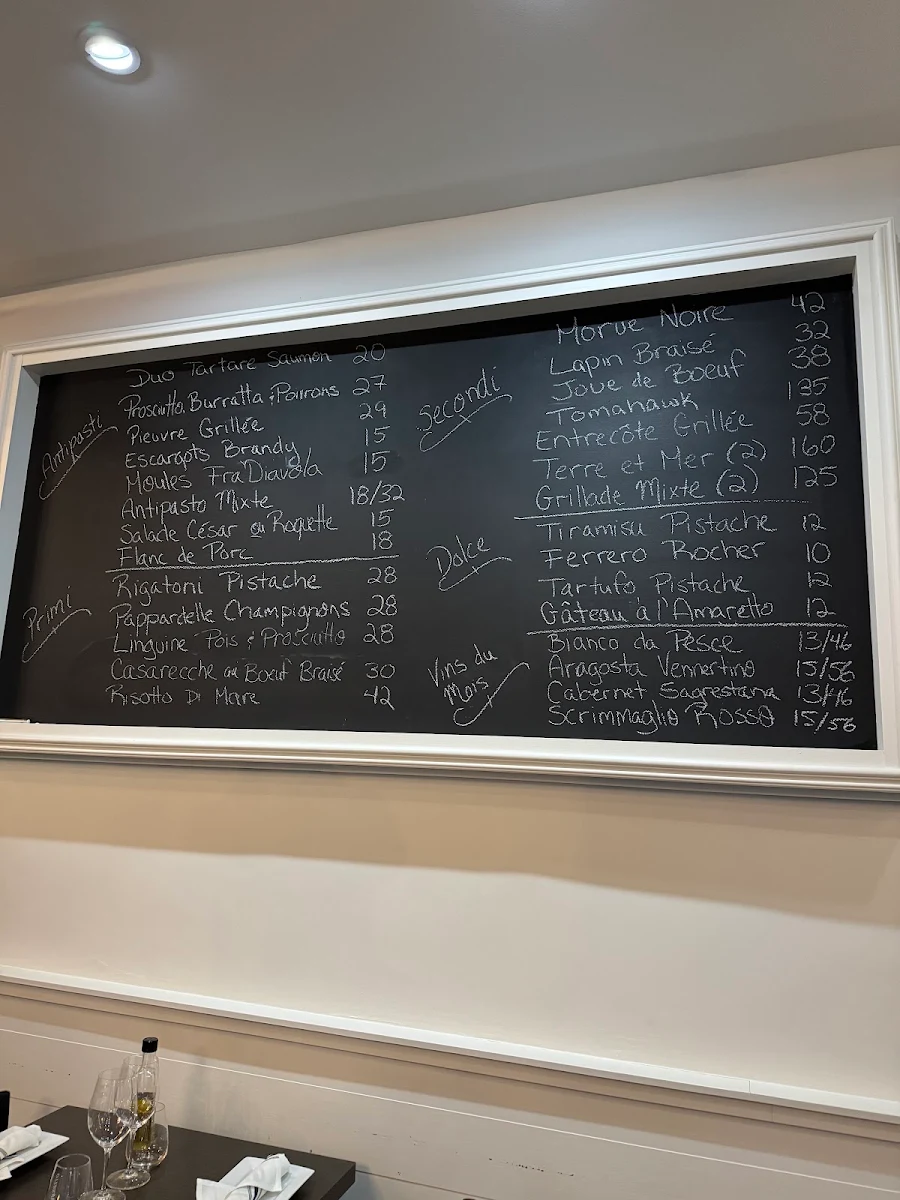 Antipasti
Duo Tartare Saumon 20
Prosciutto, Burratta & Poivrons 27
Pieuvre Grillée 29
Escargots Brandy 15
Moules Fra Diavola 15
Antipasto Mixte 18/32
Salade César ou Roquette 15
Flanc de Porc 18
Primi
Rigatoni Pistache 28
Pappardelle Champignons 28
Linguine Pois & Prosciutto 28
Casarecche au Boeuf Braisé 30
Risotto Di Mare 42
Secondi
Morue Noire 42
Lapin Braisé 32
Joue de Boeuf 38
Tomahawk 135
Entrecôte Grillée 58
Terre et Mer (2) 160
Grillade Mixte (2) 125
Dolce
Tiramisu Pistache 12
Ferrero Rocher 10
Tartufo Pistache 12
Gâteau à l'Amaretto 12
Vins du
Mois
Bianco da Pesce 13/46
Aragosta Vermentino 15/56
Cabernet Sagrestana 13/46
Scrimmaglio Rosso 15/56